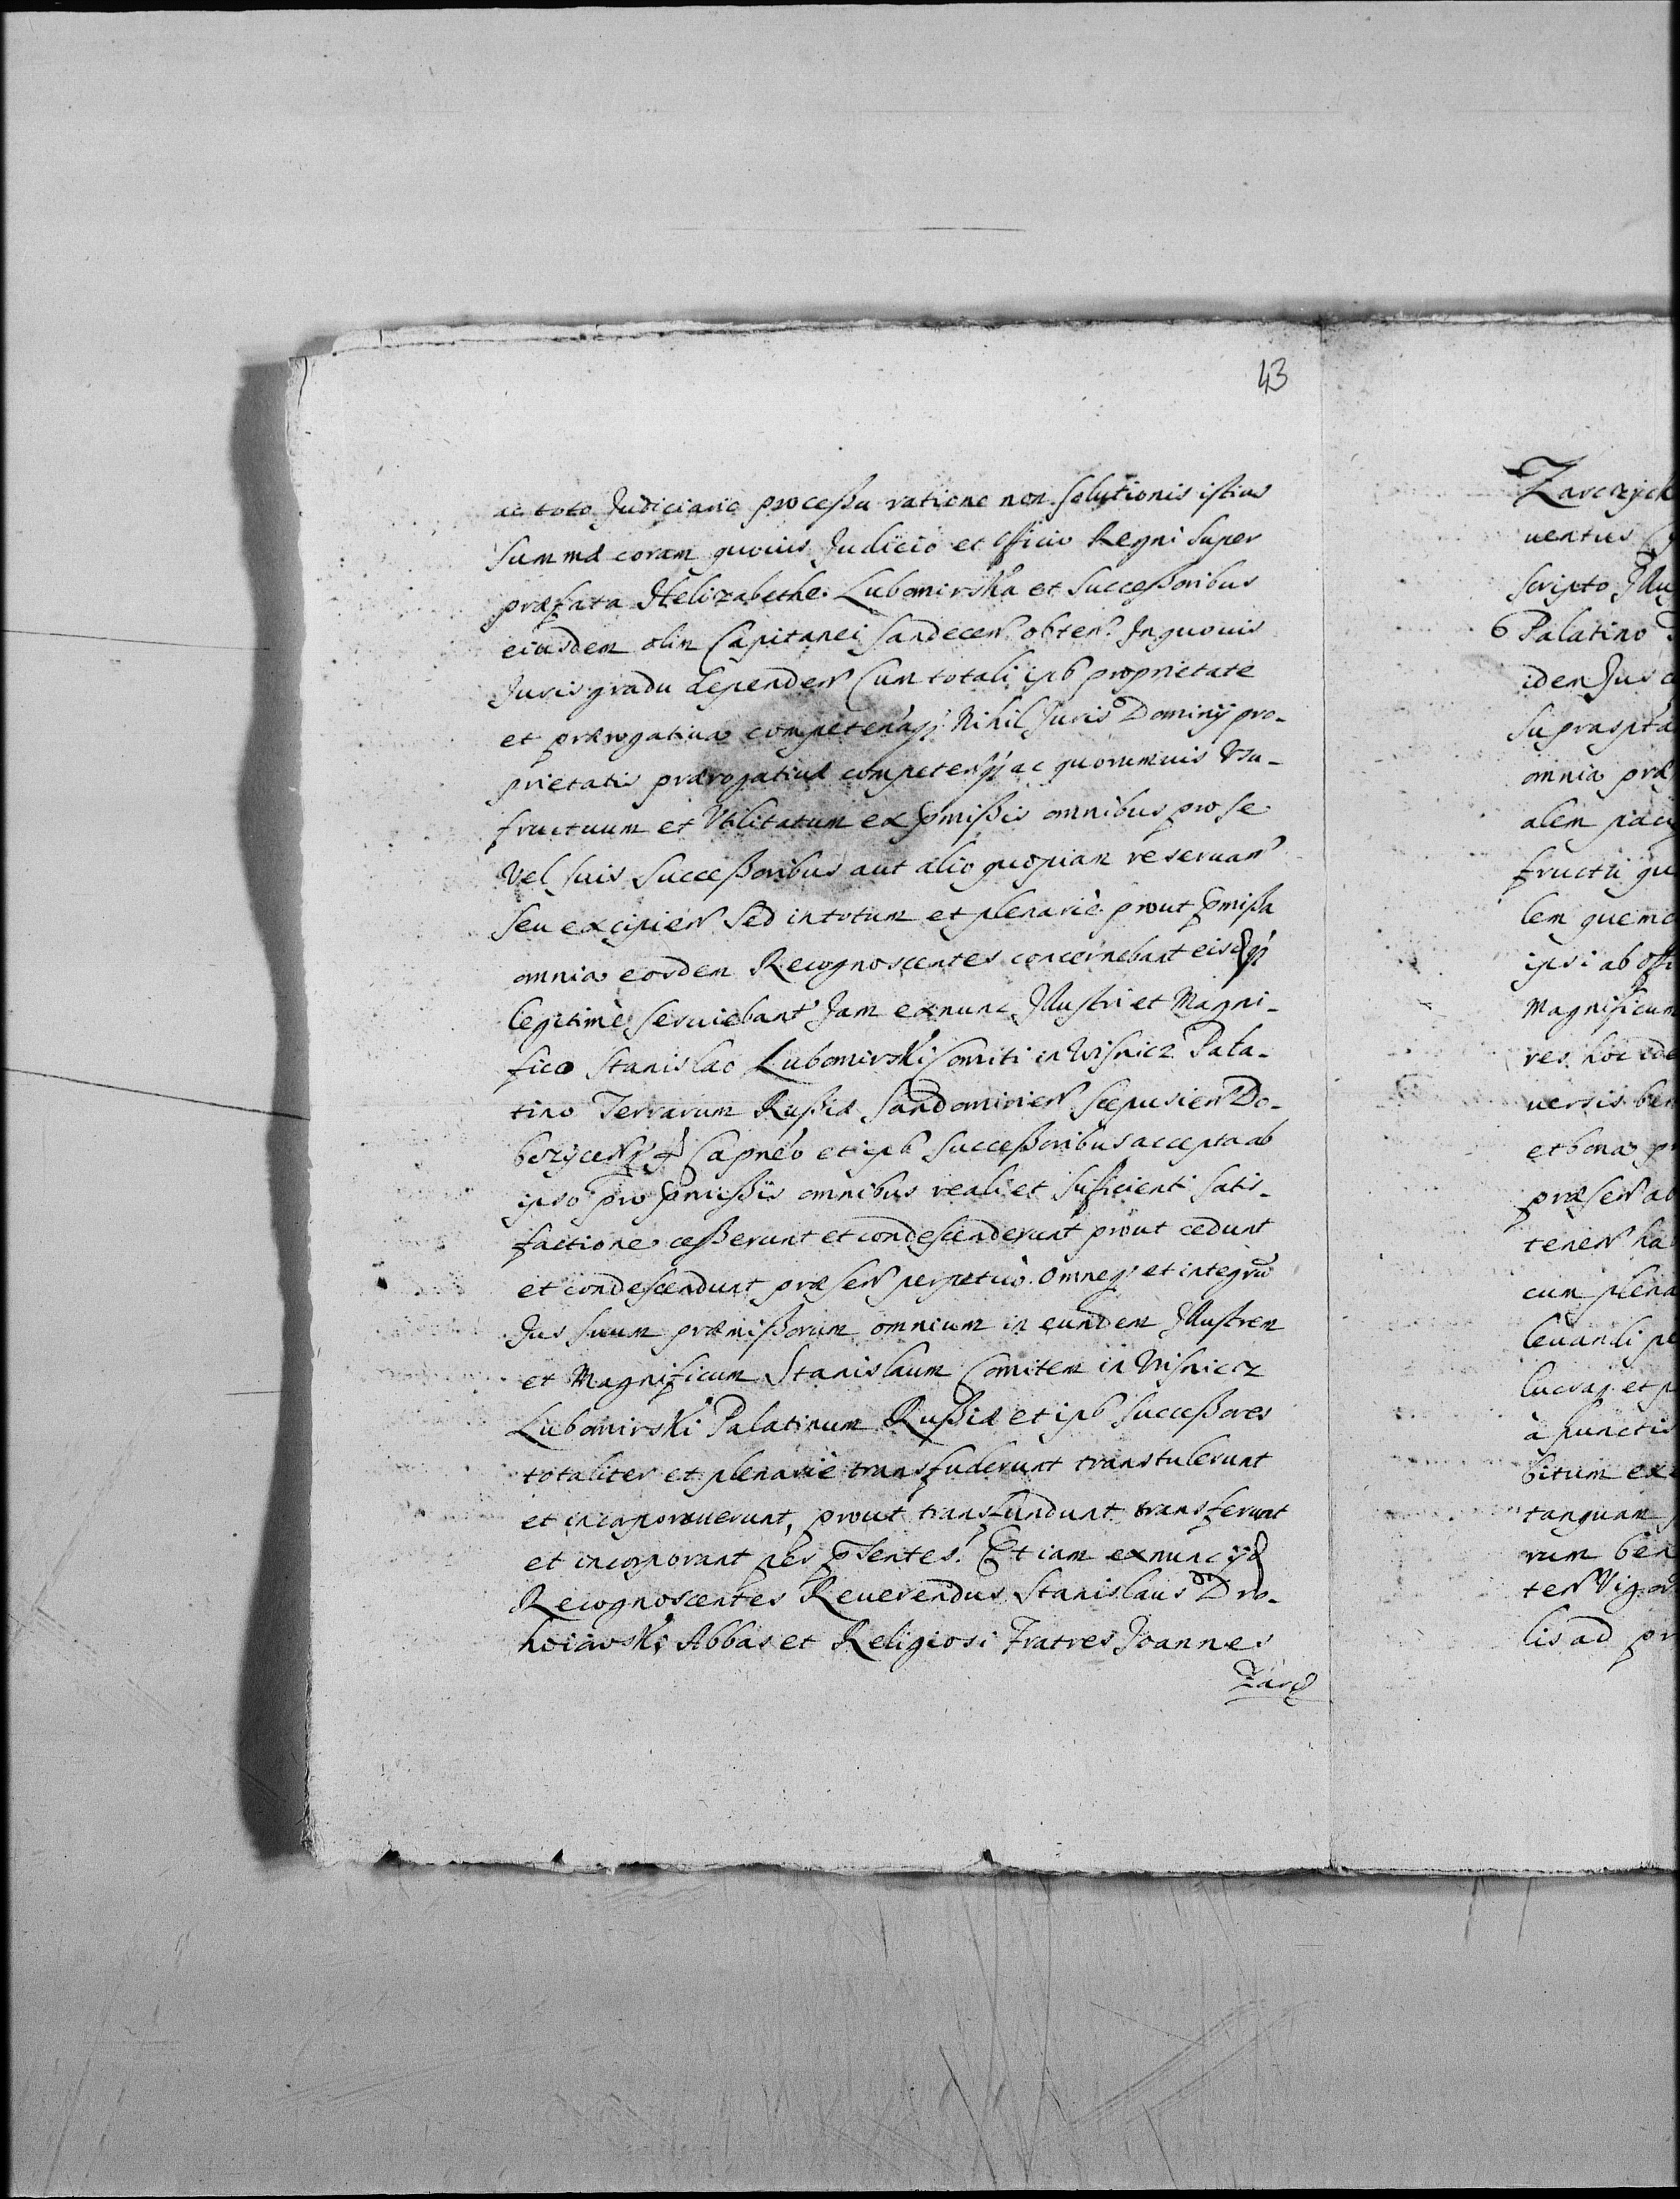 43
ac toto Judiciario processu ratione non solutionis istius
Summæ coram quovis Judicio et Officio Regni super
præfata Helizabethe Lubomirska et Successoribus
eiusdem olim Capitanei Sandecen obten. In quouis
Juris gradu dependen Cum totali ipsis proprietate
et prærogatiua competen Nihil Juris Dominij pro-
prietatis prærogatiuæ competen ac quorumuis Vsu-
fructuum et Vtilitatum ex pmissis omnibus pro se
Vel suis Successoribus aut alio quopiam reseruan
seu excipien Sed in totum et plenarie prout pmissa
omnia eosdem Recognoscentes concernebant eisq
legitimè seruiebant Jam exnunc Illustri et Magni-
fico Stanislao Lubomirski Comiti in Wisnicz Pala-
tino Terrarum Russiæ Sandomirien Scepusien Do-
bczycen Capneo et ipsius Successoribus accepta ab
ipso pro pmissis omnibus reali et sufficienti satis-
factione cesserunt et condescenderunt prout cedunt
et condescendunt præsen perpetuò. Omneq et integrũ
Jus suum præmissorum omnium in eundem Illustrem
et Magnificum Stanislaum Comitem in Wisnicz
Lubomirski Palatinum Russiæ et ipsius Successores
totaliter et plenarie transfuderunt transtulerunt
et incorporauerunt, prout transfundunt transferunt
et incorporant per psentes. Et iam exnunc ijd
Recognoscentes Reuerendus Stanislaus Dro-
hoiowski Abbas et Religiosi Fratres Joannes
Zarc
Zarczyck
uentus
scripto Illu
6 Palatino
idem Jus
supraspta
omnia præ
alem
fructũ qu
lem quemc
ipsi ab offi
Magnificum
res hoc ide
uersis be
et bona p
præsen ab
tenen ha
cum plena
leuandi pe
lucrag et p
à functis
bitum ex
tanquam
rum ben
ten Vigor
lis ad pr